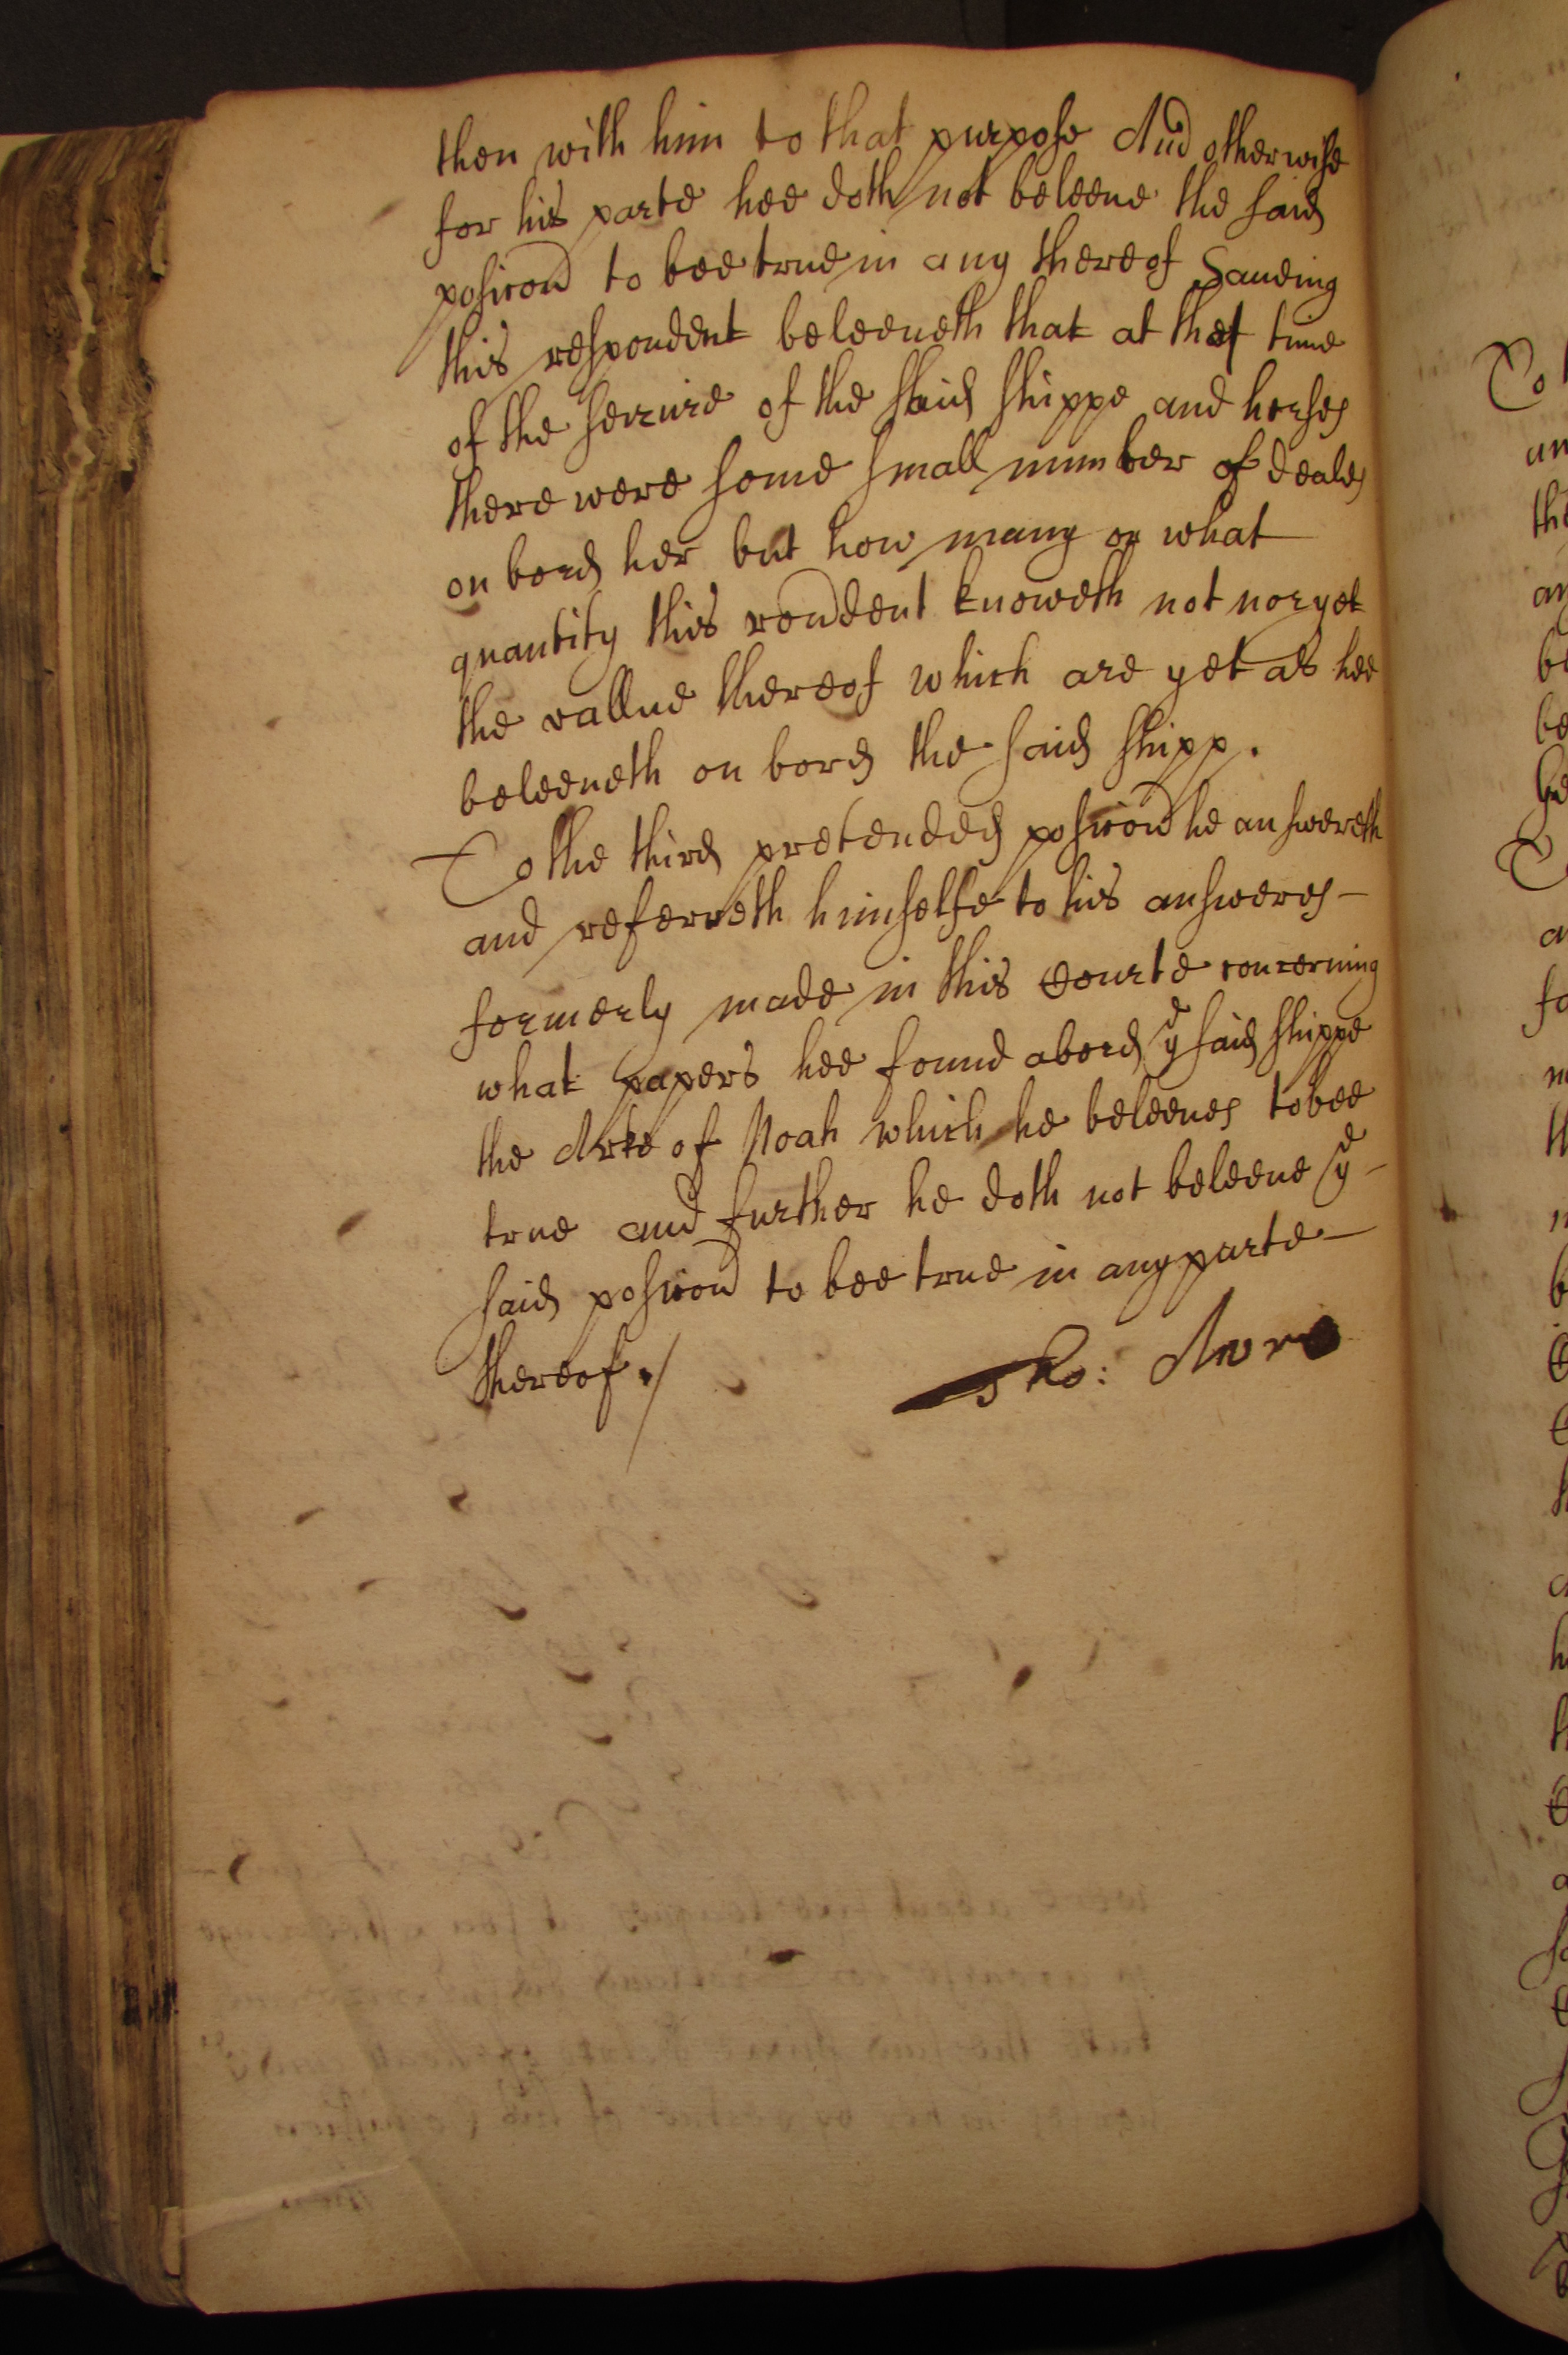 then with him to that purpose And otherwise
for his parte hee doth not beleeve the said
posicon to bee true in any thereof Saveing
this respondent beleeveth that at that time
of the seizure of the said shippe and horses
there were some small number of deales
on bord her but how many or what
quantity this rendent knoweth not nor yet
the vallue thereof which are yet as hee
beleeveth on bord the said shipp.
To the third pretended posicon he answereth
and referreth himselfe to his answeres -
formerly made in this Courte concerning
what papers hee found abord ye said shippe
the Arke of Noah which he beleeves to bee
true and further he doth not beleeve ye -
said posicon to bee true in any parte -
thereof ./